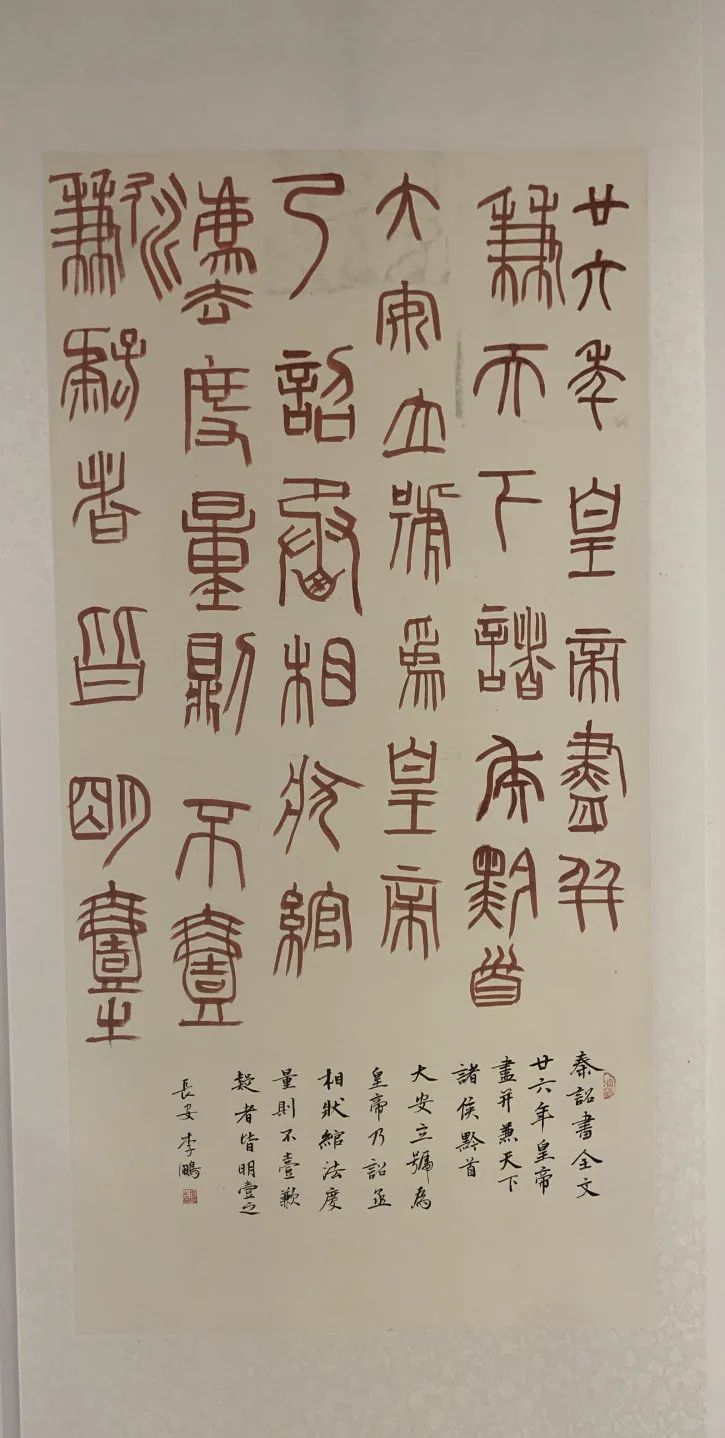 廿六年皇帝盡并
兼天下諸侯黔首
大安立號爲皇帝
乃詔丞相狀綰
灋度量則不壹
歉疑者皆明壹之
秦詔書全文
廿六年皇帝
盡并兼天下
諸侯黔首
大安立號為
皇帝乃詔丞
相狀綰法度
量則不壹歉
疑者皆明壹之
長安李鵬